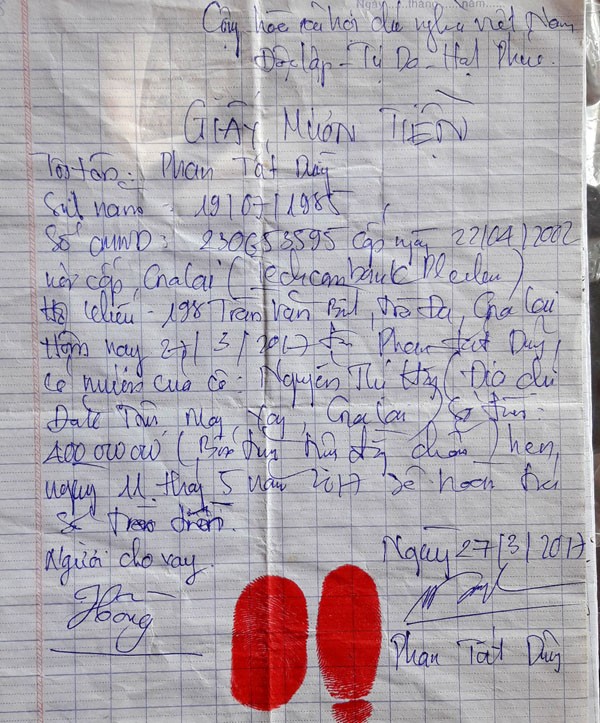 Ngày......tháng......năm......
Cộng hòa xã hội chủ nghĩa việt Nam
Độc lập - Tự Do - Hạnh Phúc.
GIẤY MƯỢN TIỀN
Tôi tên: Phan Tất Duỹ
Sinh năm: 19/07/1985
Số CMND: 230653595 Cấp ngày 22/04/2002
nơi cấp, Gia lai (Techcombank Pleiku)
Hộ khẩu - 198 Trần Văn Bình, Trà Đa, Gia lai
Hôm nay 27/3/2017 Phan Tất Duỹ,
có mượn của cô: Nguyễn Thị (Địa chỉ
Gia lai) Số tiền:
400,000,000 (Bốn trăm triệu đồng chẵn) hẹn,
ngày 11 tháng 5 năm 2017 sẽ hoàn trả
Số tiền trên.
Người cho vay.
Ngày 27/3/2017
Hồng
Phan Tất Duỹ